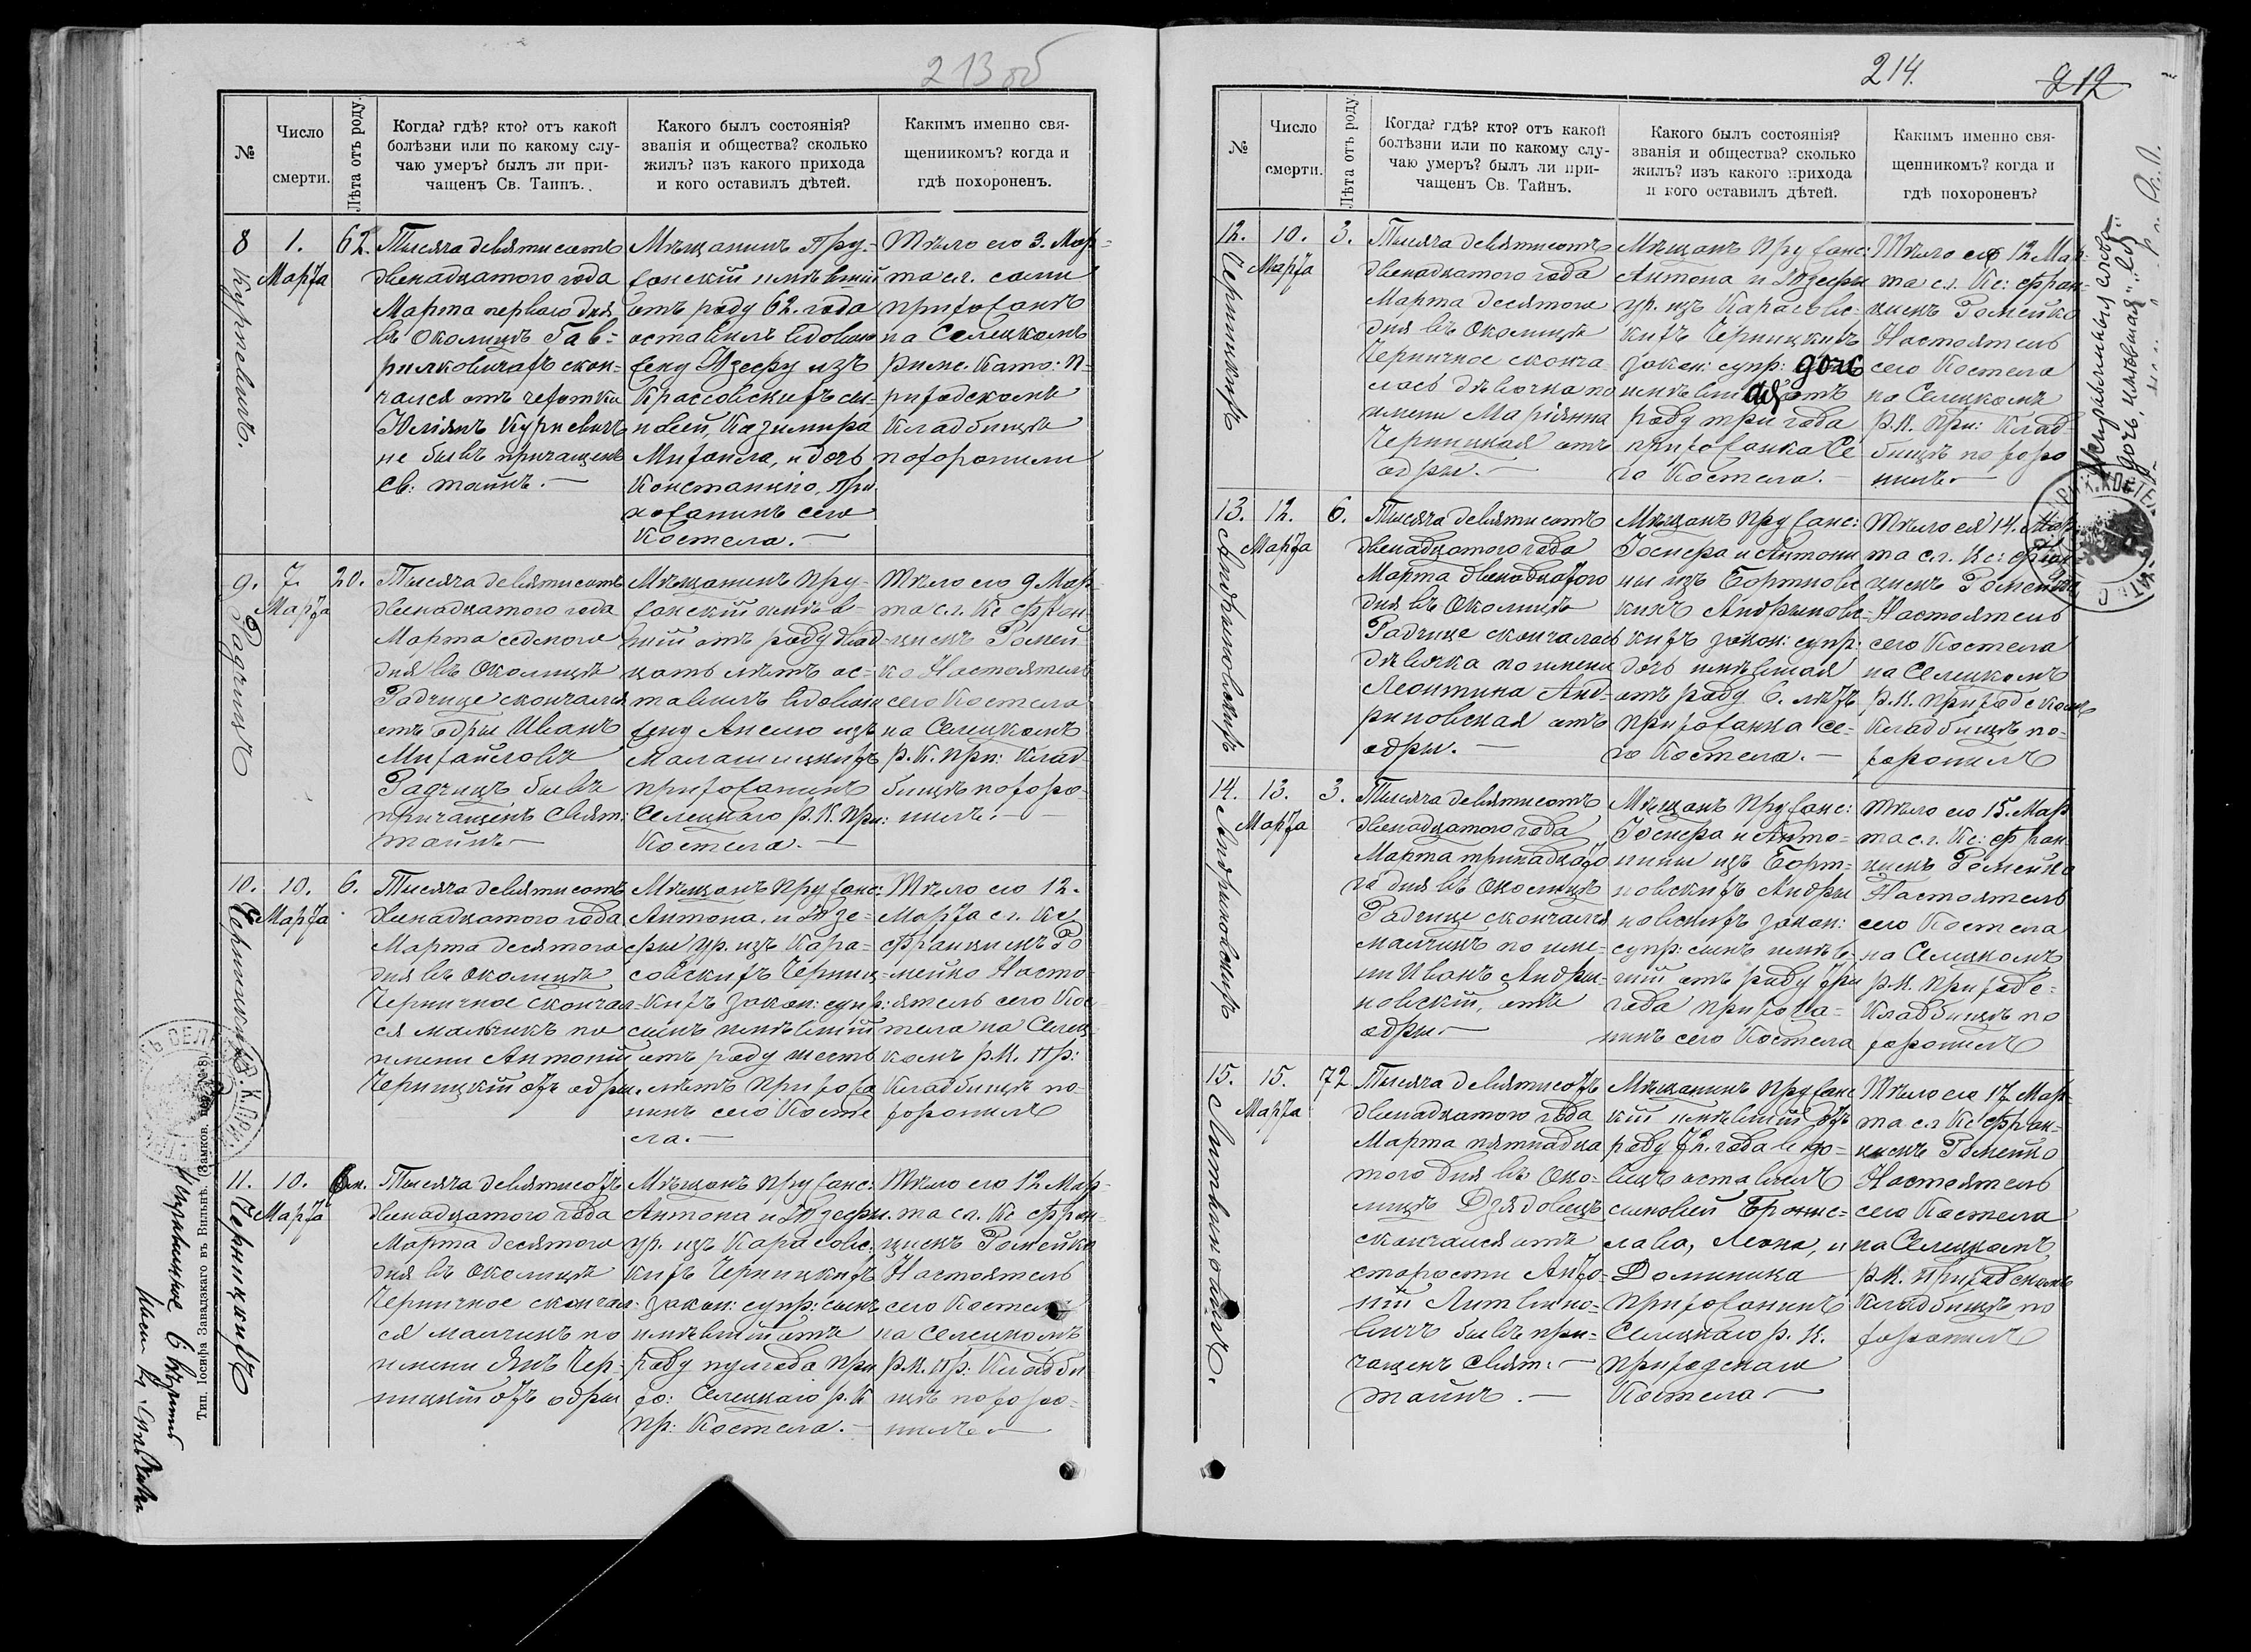 213 об
№
Число
смерти.
Лѣта отъ роду.
Когда? гдѣ? кто? отъ какой
болѣзни или по какому слу-
чаю умеръ? былъ ли при-
чащенъ Св. Таинъ.
Какого былъ состоянія?
званія и общества? сколько
жилъ? изъ какого прихода
и кого оставилъ дѣтей.
Какимъ именно свя-
щенникомъ? когда и
гдѣ похороненъ.
8
Курневичъ.
1.
Марта
62.
Тысяча девятисотъ
двенадцатого года
Марта перваго дня
въ Околицѣ Гав-
рилковичахъ скон-
чался отъ чахотки
Юліянъ Курневичъ
не бывъ причащенъ
Св: тайнъ. —
Мѣщанинъ Пру-
жанскій имѣвшій
отъ роду 62. года
оставилъ вдовою
жену Юзефу изъ
Красовскихъ сы-
новей, Казимира
Михаила, и дочь
Констанцію, При
хожанинъ сего
Костела. —
Тѣло его 3. Мар-
та с.г. сами
прихожане
на Селецкомъ
римс. Като: п-
риходскомъ
Кладбищѣ
похоронили
9.
Радчицъ
7.
Марта
20.
Тысяча девятисотъ
двенадцатого года
Марта седмого
дня въ Околицѣ
Радчице скончался
отъ одры Иванъ
Михайловъ
Радчицъ бывъ
причащенъ Свят:
тайнъ —
Мѣщанинъ Пру-
жанскій имѣв-
шій отъ роду двад-
цать лѣтъ ос-
тавилъ вдовою
жену Анелю изъ
Малашицкихъ
прихожанинъ
Селецкаго Р.К. При:
Костела. —
Тѣло его 9 Мар-
та с.г. Кс Фран-
цискъ Ромей-
ко Настоятель
сего Костела
на Селецкомъ
Р.К. При: Клад-
бищѣ похоро-
нилъ. —
10.
Черницкихъ
10.
Марта
6.
Тысяча девятисотъ
двенадцатого года
Марта десятого
дня въ околицѣ
Черничное скончал-
ся мальчикъ по
имени Антоній
Черницкій отъ одры.
Мѣщанъ Пружанс:
Антона, и Юзе-
фы ур. изъ Кара-
совскихъ Черниц-
кихъ закон: супр:
сынъ имѣвшій
отъ роду шесть
лѣтъ прихожа
нинъ сего Косте
ла. —
Тѣло его 12.
Марта с.г. Кс
Францискъ Ро
мейко Насто-
ятель сего Кос-
тела на Селец-
комъ Р.К. Пр:
Кладбищѣ по-
хоронилъ
11.
Черницкихъ
10.
Марта
Тысяча девятисотъ
двенадцатого года
Марта десятого
дня въ Околицѣ
Черничное скончал-
ся мальчикъ по
имени Янъ Чер-
ницкій отъ одры
Мѣщанъ Пружанс:
Антона и Юзефы.
ур. изъ Карасовс-
кихъ Черницкихъ
закон: супр: сынъ
имѣвшій отъ
роду пулгода При
хо: Селецкаго Р.К
пр: Костела. —
Тѣло его 12 Мар-
та с.г. Кс Фран-
цискъ Ромейко
Настоятель
сего Костела
на Селецкомъ
Р.К. Пр: Кладби-
щѣ похоро-
нилъ —
Тип. Іосифа Завадзкаго въ Вильнѣ.
214.
212
№
Число
смерти.
Лѣта отъ роду.
Когда? гдѣ? кто? отъ какой
болѣзни или по какому слу-
чаю умеръ? былъ ли при-
чащенъ Св. Тайнъ.
Какого былъ состоянія?
званія и общества? сколько
жилъ? изъ какого прихода
и кого оставилъ дѣтей.
Какимъ именно свя-
щенникомъ? когда и
гдѣ похороненъ?
12.
Черницкихъ
10.
Марта
3.
Тысяча девятисотъ
двенадцатого года
Марта десятого
дня въ Околицѣ
Черничное сконча
лась дѣвочка по
имени Маріянна
Черницкая отъ
одры. —
Мѣщанъ Пружанс:
Антона и Юзефы
ур. изъ Карасовс-
кихъ Черницкихъ
закон: супр: дочь
имѣвшая отъ
роду три года
прихожанка Се
го Костела. —
Тѣло ея 12 Мар-
та с.г. Кс: Фран-
цискъ Ромейко
Настоятель
сего Костела
на Селецкомъ
Р.К. При: Клад-
бищѣ похоро
нилъ —
13.
Андриновскихъ
12.
Марта
6.
Тысяча девятисотъ
двенадцатого года
Марта двенадцатого
дня въ Околицѣ
Радчице скончалась
дѣвочка по имени
Леонтина Анд-
риновская отъ
одры. —
Мѣщанъ Пружанс:
Госпера и Антони
ны изъ Бортновс
кихъ Андриновс-
кихъ закон: супр:
дочь имѣвшая
отъ роду 6. лѣтъ
прихожанка се-
го Костела. —
Тѣло ея 14. Мар-
та с.г. Кс: Фран-
цискъ Ромейко
Настоятель
сего Костела
на Селецкомъ
Р.К. Приходскомъ
Кладбищѣ по-
хоронилъ
14.
Андриновскихъ
13.
Марта
3.
Тысяча девятисотъ
двенадцатого года
Марта тринадцато
го дня въ Околицѣ
Радчице скончался
мальчикъ по име-
ни Иванъ Андри-
новскій, отъ
одры —
Мѣщанъ Пружанс:
Госпера и Анто-
нины изъ Борт-
новскихъ Андри
новскихъ закон:
супр: сынъ имѣв-
шій отъ роду три
года прихожа-
нинъ сего Костела
Тѣло его 15. Мар
та с.г. Кс: Фран
цискъ Ромейко
Настоятель
сего Костела
на Селецкомъ
Р.К. Приходс:
Кладбищѣ по
хоронилъ
15.
Литвиновичъ.
15.
Марта
72
Тысяча девятисотъ
двенадцатого года
Марта пятнадца
того дня въ Око-
лицѣ Дзядовецъ
скончался отъ
старости Анто-
ній Литвино-
вичъ бывъ при-
чащенъ Свят: —
тайнъ. —
Мѣщанинъ Пружанс
кій имѣвшій отъ
роду 72. года вдо-
вецъ оставилъ
сыновей Бронис-
лава, Леона, и
Доминика
прихожанинъ
Селецкаго Р. К.
приходскаго
Костела —
Тѣло его 17 Мар-
та с.г Кс Фран-
цискъ Ромейко
Настоятель
сего Костела
на Селецкомъ
Р.К. Приходскомъ
Кладбищѣ по
хоронилъ